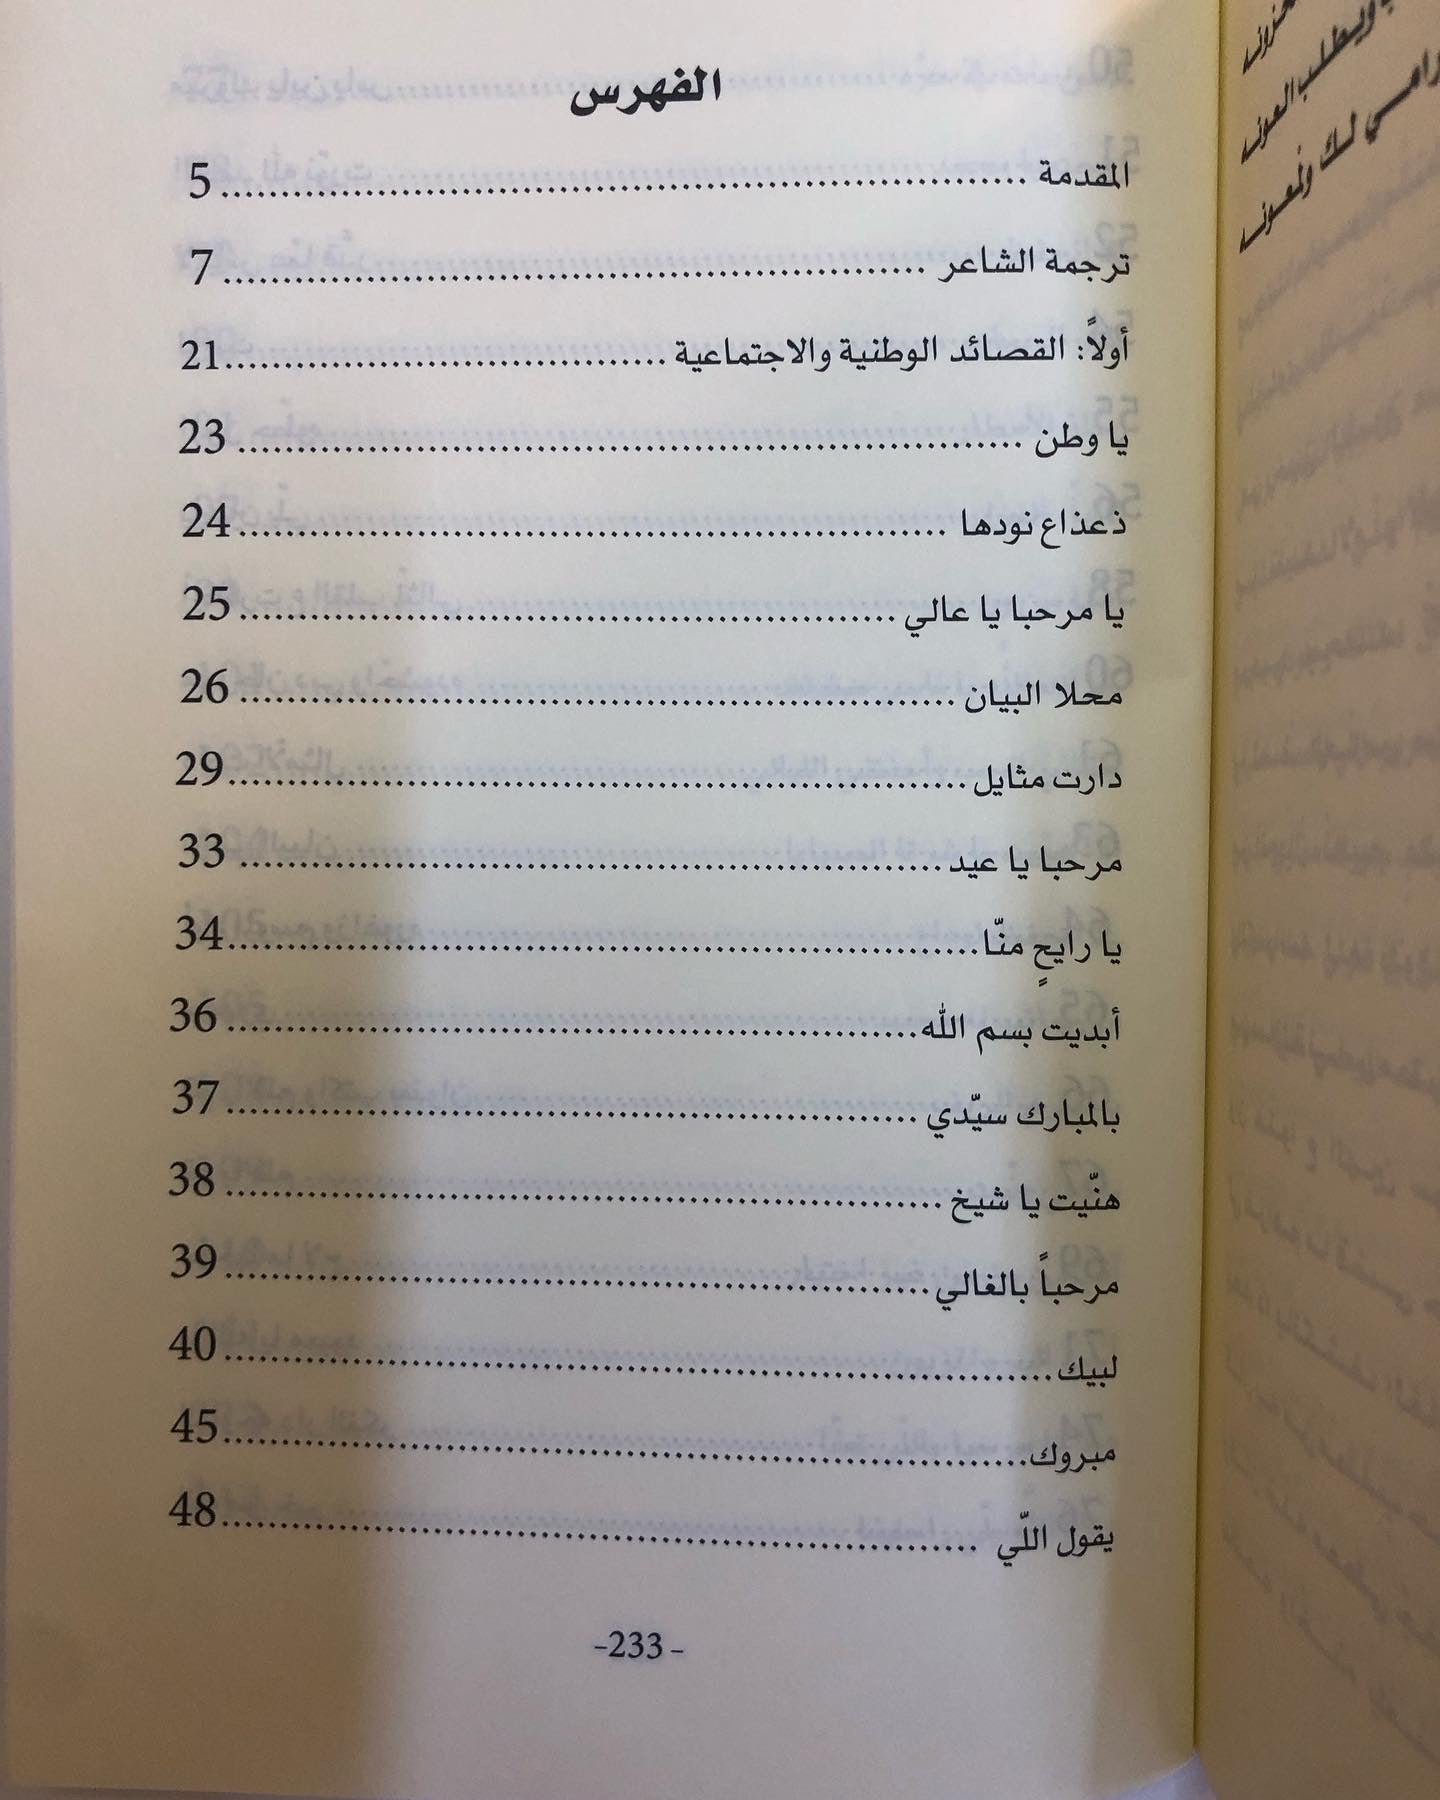 الفهرس
المقدمة ........................................................ 5
ترجمة الشاعر ........................................................ 7
أولاً: القصائد الوطنية والاجتماعية ........................................ 21
يا وطن ........................................................ 23
ذعذاع نودها ........................................................ 24
يا مرحبا يا عالي ........................................................ 25
محلا البيان ........................................................ 26
دارت مثايل ........................................................ 29
مرحبا يا عيد ........................................................ 33
يا رايحٍ منّا ........................................................ 34
أبديت بسم الله ........................................................ 36
بالمبارك سيّدي ........................................................ 37
هنّيت يا شيخ ........................................................ 38
مرحباً بالغالي ........................................................ 39
لبيك ........................................................ 40
مبروك ........................................................ 45
يقول اللّي ........................................................ 48
-233-
ويطلب العون
لك ولمعون